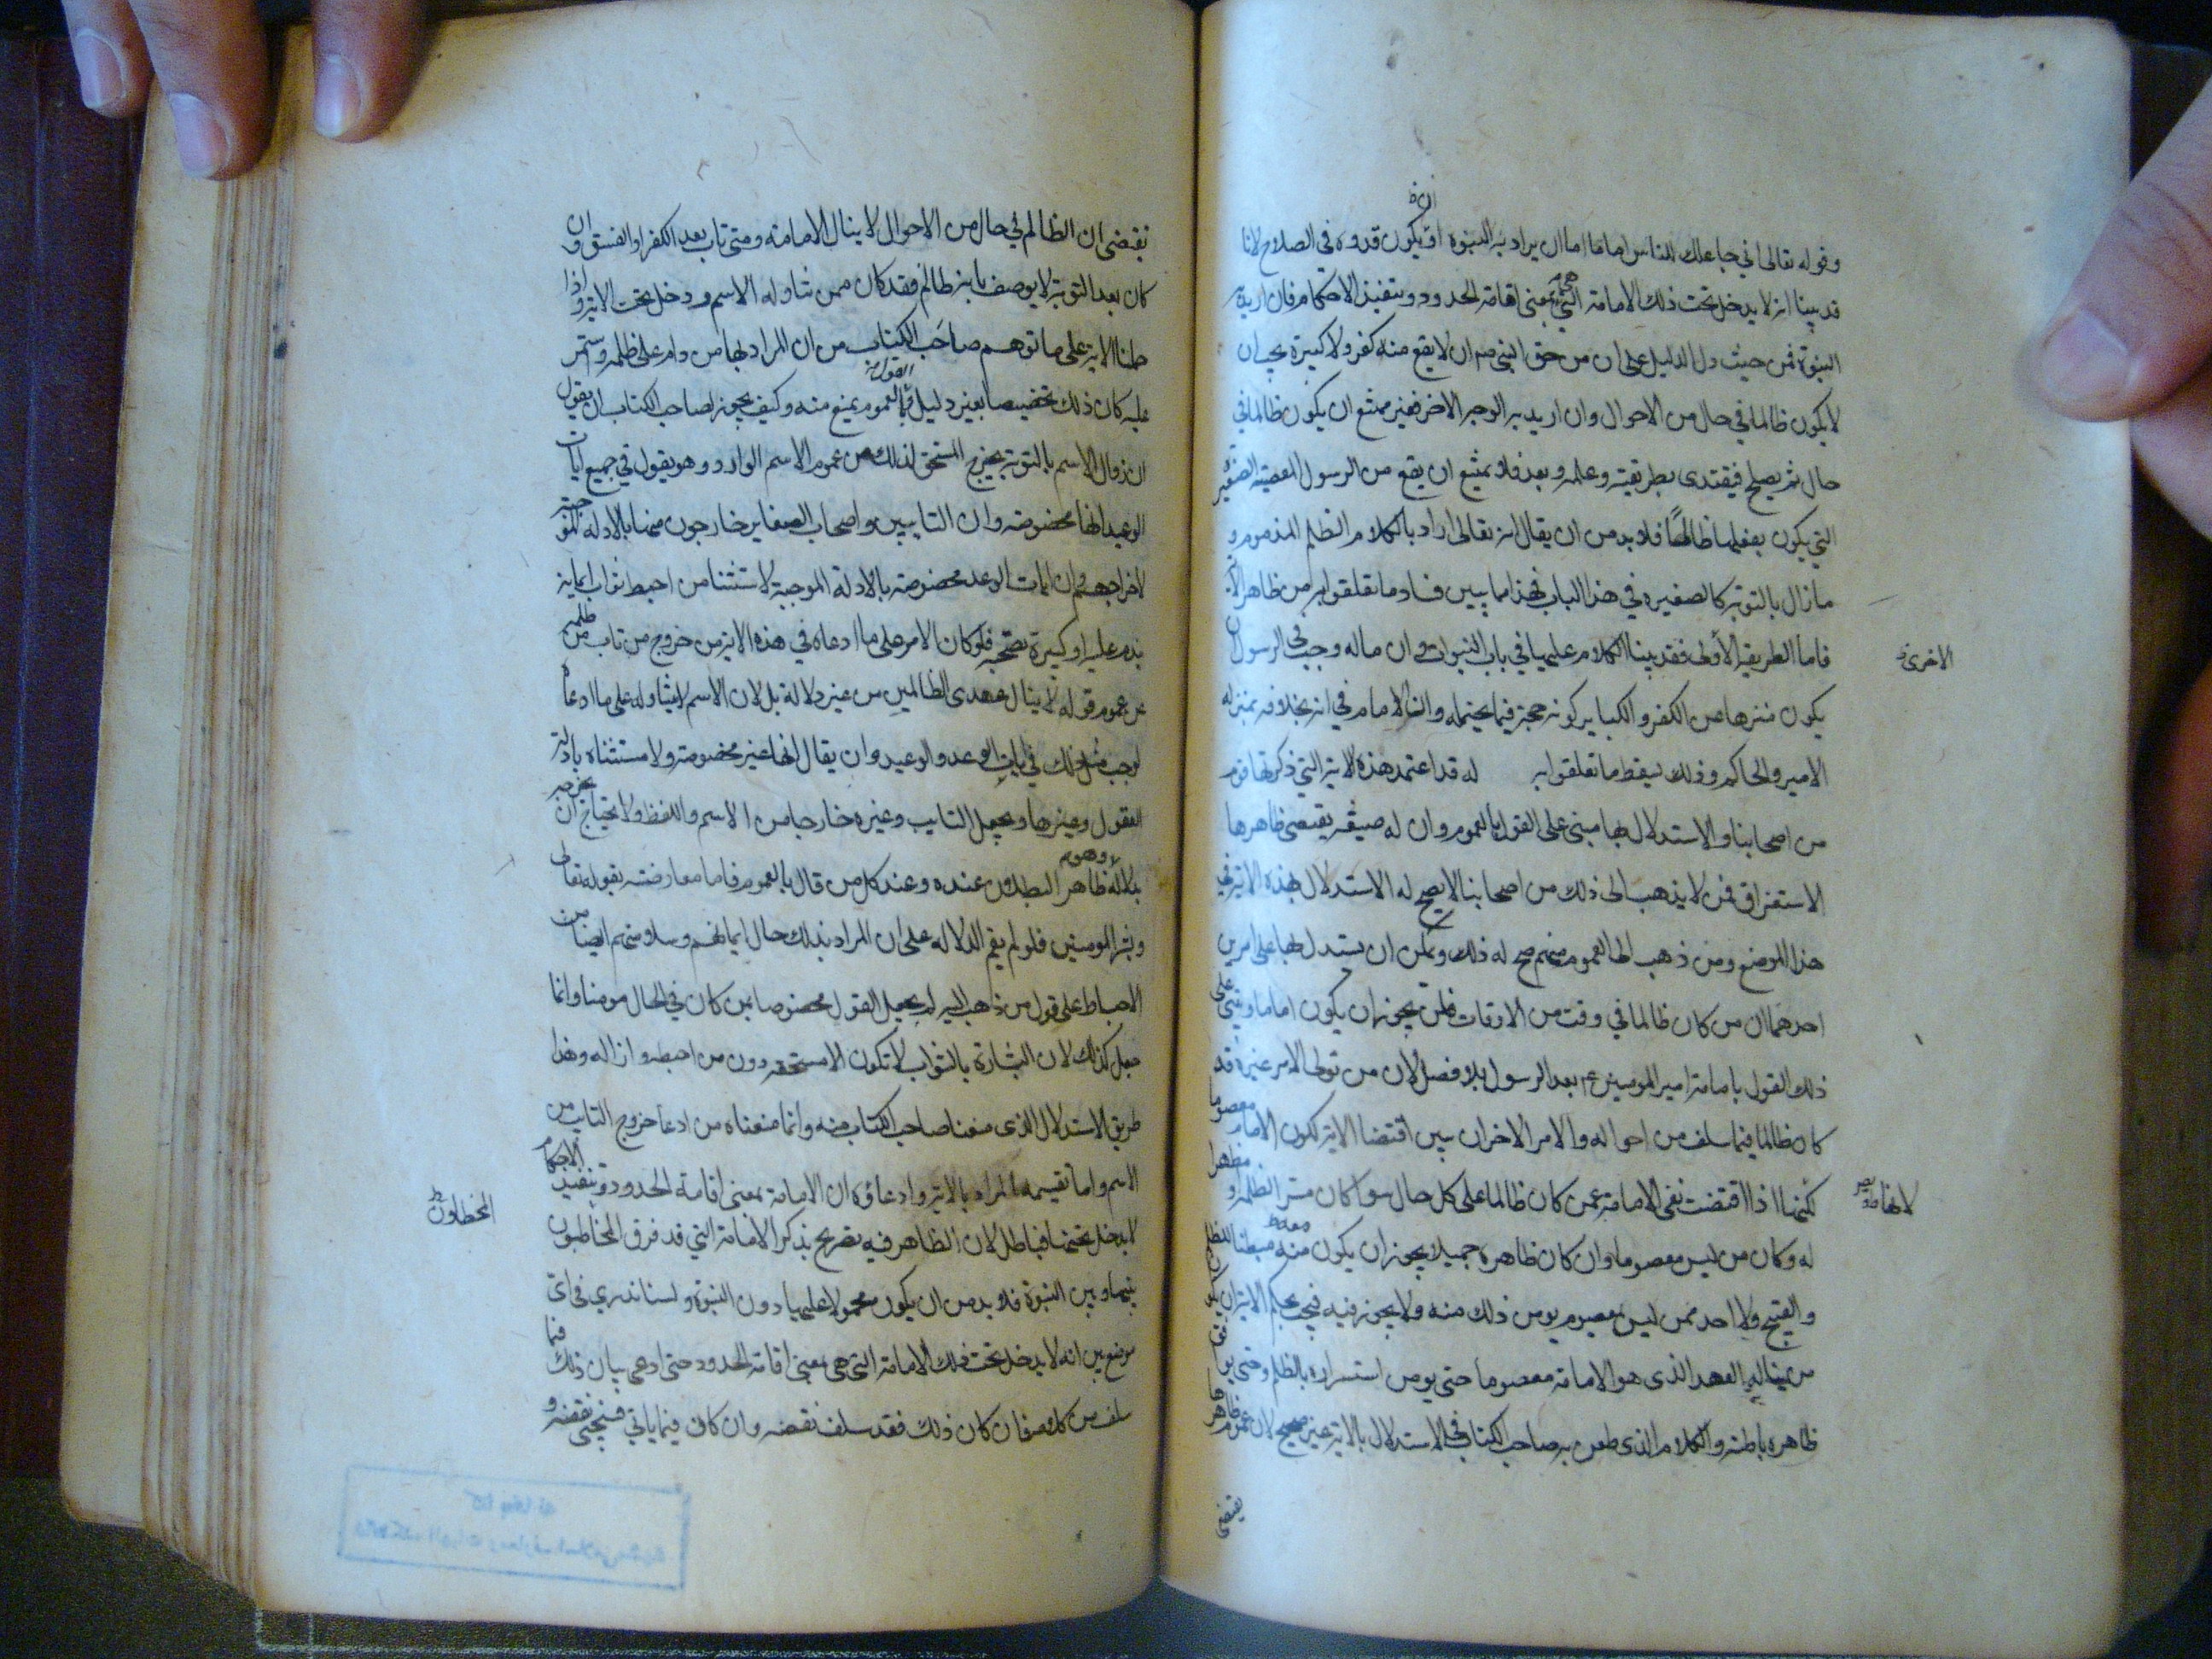 وقوله تعالى اني جاعلك للناس اماما اما ان يراد به النبوة او ان يكون قدوة في الصلاح لانا
قد بينا انه لا يدخل تحت ذلك الامامة التي هي بمعنى اقامة الحدود وتنفيذ الاحكام فان اريد به
النبوة فمن حيث دل الدليل على ان من حق النبي ان لا يقع منه كفر ولا كبيرة يجب ان
لا يكون ظالما في حال من الاحوال وان اريد به الوجه الاخر فغير ممتنع ان يكون ظالما في
حال ثم يصلح فيقتدى بطريقته وعلمه وبعد فلا يمتنع ان يقع من الرسول المعصية الصغيرة
التي يكون بفعلها ظالما فلا بد من ان يقال انه تعالى اراد بالكلام الظلم المذموم و
ما زال بالتوبة كالصغيرة في هذا الباب فهذا مما يبين فساد ما تعلقوا به من ظاهر الاية
فاما الطريقة الأولى فقد بينا الكلام عليها في باب النبوات وان ماله وجب في الرسول ان
الاخرى
يكون منزها عن الكفر والكباير كونه حجة فيما يحتمله وان الامام في انه بخلافه بمنزلة
الامير والحاكم وذلك يسقط ما تعلقوا به له قد اعتمد هذه الاية التي ذكرتها قوم
من اصحابنا والاستدلال بها مبنى على القول بالعموم وان له صيغة يقتضى ظاهرها
الاستغراق فمن لا يذهب الى ذلك من اصحابنا لا يصح له الاستدلال بهذه الاية في
هذا الموضع ومن ذهب الى العموم منهم صح له ذلك ويمكن ان يستدل بها على امرين
احدهما ان من كان ظالما في وقت من الاوقات فلن يجوز ان يكون اماما ويبنى على
ذلك القول بامامة امير المومنين ع بعد الرسول بلا فصل لان من تولى الامر غيره قد
كان ظالما فيما سلف من احواله والامر الاخر ان يبين اقتضا الاية لكون الامام معصوما
لانها
لكنها اذا اقتضت نفى الامامة عمن كان ظالما على كل حال سوا كان مستر الظلم او مظهرا
له وكان من ليس معصوما وان كان ظاهره جميلا يجوز ان يكون منه مبطنا للظلم
والقبيح ولا احد ممن ليس بمعصوم يومن ذلك منه ولا يجوز فيه فيجب بحكم الاية ان يكون
من يناله العهد الذى هو الامامة معصوما حتى يومن استسراره بالظلم وحتى يوافق
ظاهره باطنه والكلام الذى طعن به صاحب الكتاب في الاستدلال بالاية غير صحيح لان عموم ظاهرها
يقتضي
يقتضى ان الظالم في حال من الاحوال لا ينال الامامة ومتى تاب بعد الكفر او الفسق وان
كان بعد التوبة لا يوصف بانه ظالم فقد كان ممن تناوله الاسم ودخل تحت الاية واذا
حملنا الاية على ما توهم صاحب الكتاب من ان المراد بها من دام على ظلمه واستمر
القول به
عليه كان ذلك تخصيصا بغير دليل والعموم يمنع منه وكيف يجوز لصاحب الكتاب ان يقول
ان زوال الاسم بالتوبة يخرج المستحق لذلك من عموم الاسم الوارد وهو يقول في جميع ايات
الوعيد انها مخصوصة وان التايبين واصحاب الصغاير خارجون منها بالادلة الموجبة
لاخراجهم وان ايات الوعد مخصوصة بالادلة الموجبة لاستثنا من احبط ثواب ايمانه
بندم عليه او كبيرة تصحبه فلو كان الامر على ما ادعاه في هذه الاية من خروج من تاب من ظلمه
عن عموم قوله لا ينال عهدى الظالمين من غير دلالة بل لان الاسم لا يتناوله على ما ادعاه
لوجب مثل ذلك في ايات الوعد والوعيد وان يقال انها غير مخصوصة ولا مستثناة بادلة
العقول وغيرها ويجعل التايب وغيره خارجا من الاسم واللفظ ولا يحتاج ان نخرجه
بدلالة وهو ظاهر البطلان عنده وعند كل من قال بالعموم فاما معارضته بقوله تعالى
وبشر المومنين فلو لم يقم الدلالة على ان المراد بذلك حال ايمانهم وسلامتهم ايضا من
الاحباط على قول من ذهب اليه لم يجعل القول مخصوصا بمن كان في الحال مومنا وانما
جعل كذلك لان البشارة بالثواب لا تكون الا مستحقه دون من احبطه وازاله وهذا
طريق الاستدلال الذى منعنا صاحب الكتاب منه وانما منعناه من ادعا خروج التايب من
الاسم واما تقسيمه المراد بالاية وادعاؤه ان الامامة بمعنى اقامة الحدود وتنفيذ الاحكام
لا يدخل تحتها فباطل لان الظاهر فيه تصريح بذكر الامامة التي قد فرق المخاطبون
المخطاون
بينها وبين النبوة فلا بد من ان يكون محمولا عليها دون النبوة ولسنا ندري في اى
موضع بين انه لا يدخل تحت ذلك الامامة التى هي بمعنى اقامة الحدود حتى ادعى بيان ذلك فيما
سلف من كلامه فان كان ذلك فقد سلف نقضه وان كان فيما ياتي فسيجي نقضه و